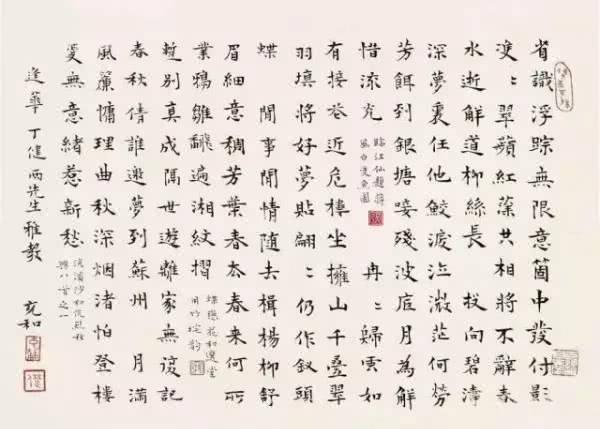 省識浮踪無限意箇中發付影
雙〻翠蘋紅藻共相將不辭春
水逝解道柳絲長 投向碧濤
深夢裏任他鮫淚泣微茫何勞
芳餌到銀塘唼殘波底月為解
惜流光
臨江仙題蔣
風白雙魚圖
冉〻歸雲如
有接卷近危樓坐擁山千疊翠
羽填將好夢貼翩〻仍作釵頭
蝶 閒事閒情隨去楫楊柳舒
眉細意稠芳葉春亦春來何所
業鴉雛飜遍湘紋摺
蝶戀花和愛棠
用竹垞韵
蹔別真成隔世遊離家無復記
春秋倩誰邀夢到蘇州 月滿
風簾慵理曲秋深烟渚怕登樓
更無意緒惹新愁
浣溪沙和
八首之一
逢華 丁健 兩先生雅教
充和